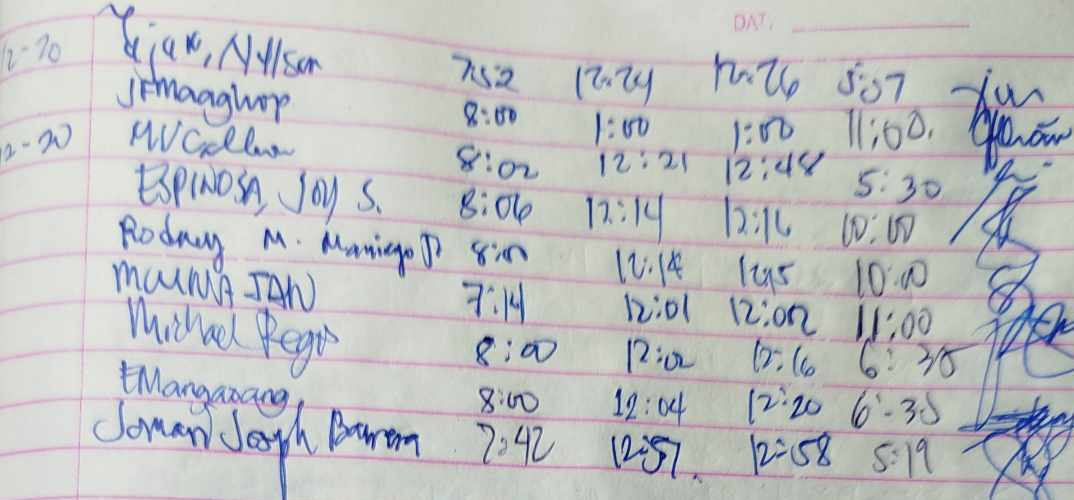 DAT.
12-20 Nylson 7:52 12:24 12:26 5:07
JFMaaghop 8:00 1:00 1:00 11:00.
12-20 8:02 12:21 12:48 5:30
ESPINOSA, JOY S. 8:06 12:14 12:16 10:00
Rodney M. Maniego Jr 8:00 12:14 12:15 10:00
JAN 7:14 12:01 12:02 11:00
Michael Regis 8:00 12:02 12:16 6:30
EMangaoang 8:00 12:04 12:20 6:30
Joman Joseph Barrera 7:42 12:57 12:58 5:19